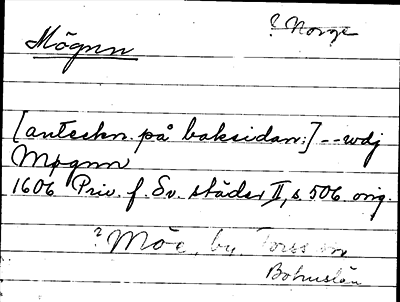 ? Norge
Mögnn
[anteckn. på baksidan:] -- wdj
Møgnn
1606 Priv. f. Sv. städer II, s. 506 orig.
? Möe, by,
Bohuslän